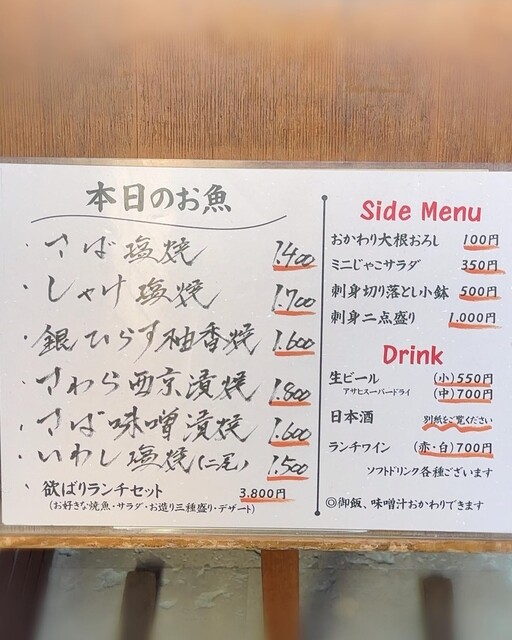 本日のお魚
・さば塩焼 1.400
・しゃけ塩焼 1.700
・銀ひらす柚香焼 1.600
・さわら西京漬焼 1.800
・さば味噌漬焼 1.600
・いわし塩焼(二尾) 1.500
・欲ばりランチセット 3.800円
(お好きな焼魚・サラダ・お造り三種盛り・デザート)
Side Menu
おかわり大根おろし 100円
ミニじゃこサラダ 350円
刺身切り落とし小鉢 500円
刺身二点盛り 1.000円
Drink
生ビール (小)550円
アサヒスーパードライ (中)700円
日本酒 別紙をご覧ください
ランチワイン (赤・白)700円
ソフトドリンク各種ございます
◎御飯、味噌汁おかわりできます